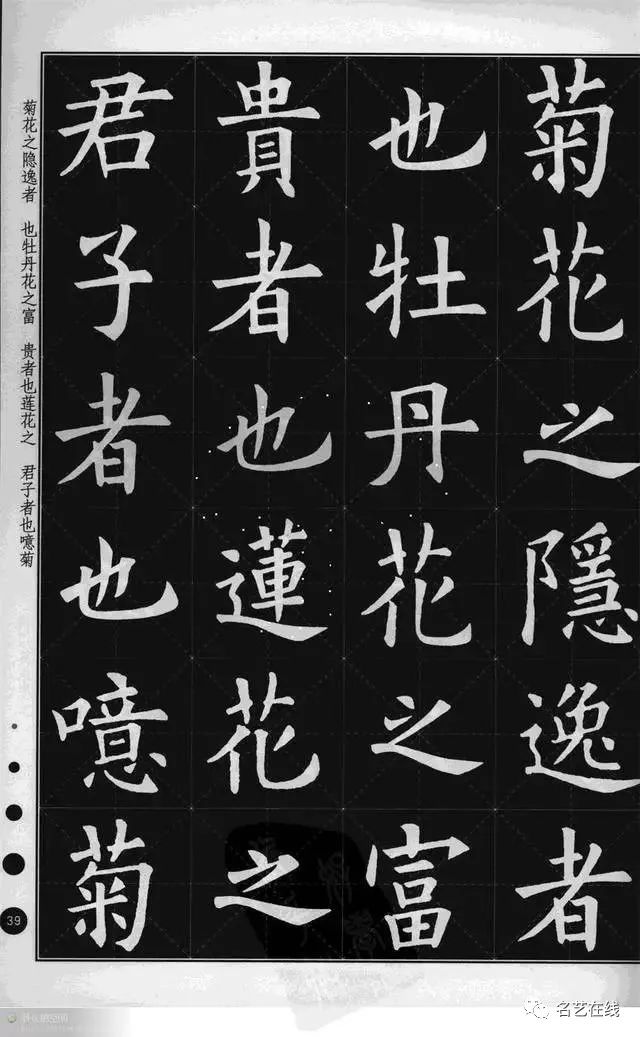 菊花之隱逸者
也牡丹花之富
貴者也蓮花之
君子者也噫菊
菊花之隐逸者 也牡丹花之富 贵者也莲花之 君子者也噫菊
39
名艺在线